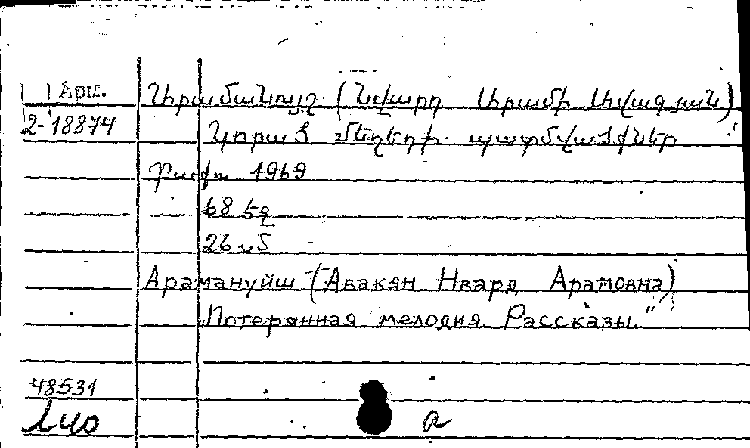 Арм.
Արամանույշ (Նվարդ Արամի Ավագյան)
2-18874
Կորած մեղեդի պատմվածքներ
1969
68 էջ
Арамануйш (Авакян Нвард Арамовна)
Потерянная мелодия. Рассказы."
48531
a